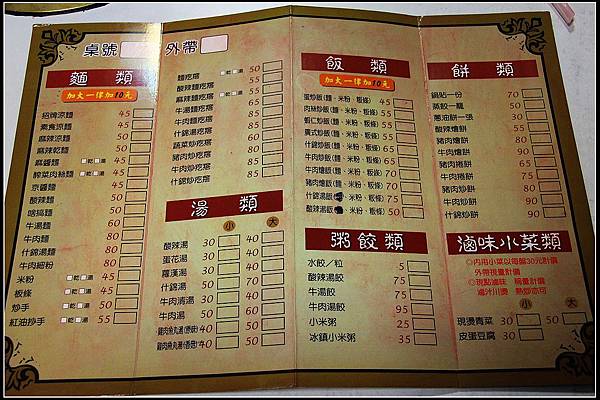 桌號 外帶
麵類
加大一律加10元
招牌涼麵 45
素食涼麵 45
麻辣涼麵 50
麻辣乾麵 50
麻醬麵 乾 湯 45
榨菜肉絲麵 乾 湯 45
京醬麵 50
酸辣麵 50
牛湯麵 60
牛肉麵
什錦湯麵
牛肉細粉
米粉 乾 湯 45
粄條 乾 湯 45
抄手 乾 湯 50
紅油抄手 乾 湯 55
麵疙瘩 乾 湯 50
酸辣麵疙瘩 55
麻辣麵疙瘩 乾 湯 55
牛湯麵疙瘩 65
牛肉麵疙瘩
什錦湯疙瘩
蔬菜炒疙瘩 60
豬肉炒疙瘩
牛肉炒疙瘩 85
什錦炒疙瘩 85
湯類
小 大
酸辣湯 30 40
蛋花湯 30 40
羅漢湯 30 40
什錦湯 50 70
牛肉清湯 30 40
牛肉湯 50 70
40 50
40 50
飯類
加大一律加10元
蛋炒飯(麵、米粉、粄條) 45
肉絲炒飯(麵、米粉、粄條) 55
蝦仁炒飯(麵、米粉、粄條) 65
廣式炒飯(麵、米粉、粄條) 65
什錦炒飯(麵、米粉、粄條) 65
牛肉炒飯(麵、米粉、粄條) 65
牛肉燴飯(麵、米粉、粄條) 75
豬肉燴飯(麵、米粉、粄條)
什錦湯飯
酸辣湯飯 50
粥餃類
水餃／粒 5
酸辣湯餃 75
牛湯餃 75
牛肉湯餃 95
小米粥 25
冰鎮小米粥 35
餅類
鍋貼一份 70
蒸餃一籠 50
蔥油餅一張 30
酸辣燴餅 55
豬肉燴餅 80
牛肉燴餅 90
豬肉捲餅 65
牛肉捲餅 75
豬肉炒餅 80
牛肉炒餅 90
什錦炒餅 90
滷味小菜類
◎內用小菜以每盤30元計價
外帶視量計價
◎現點滷味 稱量計價
滷汁川燙 熱炒亦可
小 大
現燙青菜 30 50
皮蛋豆腐 30